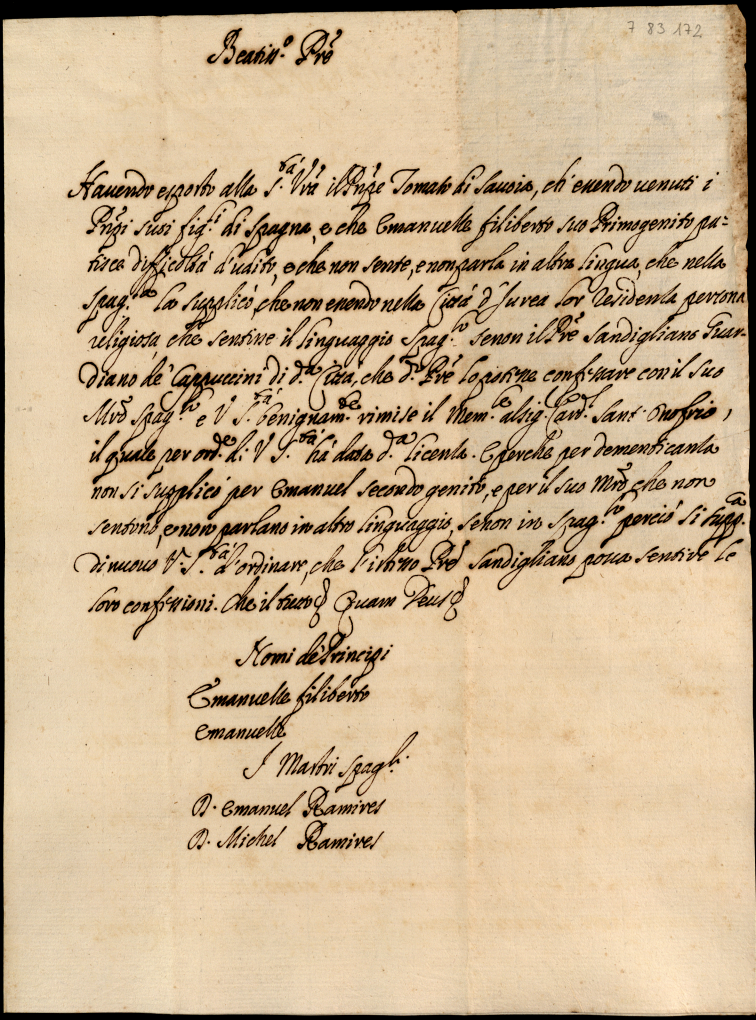 7 83 172
Beatiss.º Prẽ
Havendo esposto alla S.tà Vrã il Prñpe Tomaso di Savoia, ch'essendo venuti i
Prñpi suoi fig.li di Spagna, e che Emanuelle filiberto suo Primogenito pa-
tisce difficoltà d'udito, e che non sente, e non parla in altra lingua, che nella
Spag.la la supplicò, che non essendo nella Città d'Ivrea lor residenza persona
religiosa che sentisse il linguaggio Spag.lo senon il Prẽ Sandigliano Guar-
diano de' Cappuccini di d.a Città, che d.o Prẽ lo potesse confessare con il suo
Mrõ Spag.lo e V S.tà benignam.te rimise il Mem.le al sig. Card.l Sant' Onofrio,
il quale per ord.e di V S.tà hà data d.a licenza. E perche per dementicanza
non si supplicò per Emanuel secondo genito, e per il suo Mrõ che non
sentono, e non parlano in altro linguaggio, senon in Spag.lo perciò si supp.ca
di nuovo V S.tà d'ordinare, che l'istesso Prẽ Sandigliano possa sentire le
loro confessioni. Che il tutto Quam Deus
Nomi de Principi
Emanuelle filiberto
Emanuelle
I Mastri Spag.li
D. Emanuel Ramires
D. Michel Ramires